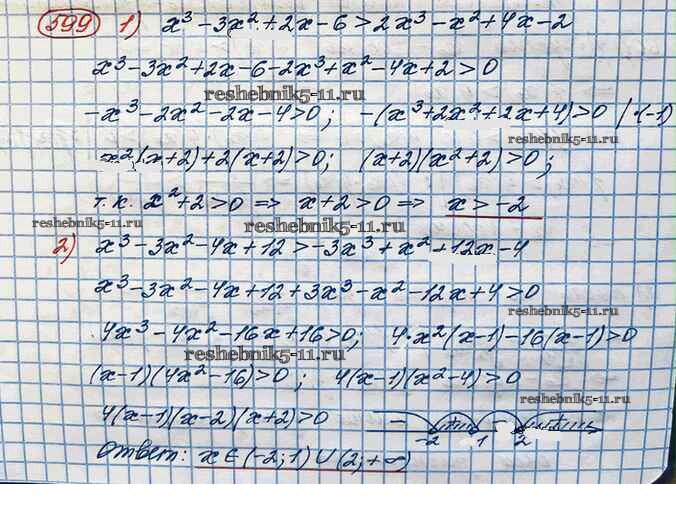 599 1) x³-3x²+2x-6>2x³-x²+4x-2
x³-3x²+2x-6-2x³+x²-4x+2>0
reshebnik5-11.ru
-x³-2x²-2x-4>0; -(x³+2x²+2x+4)>0 / ·(-1)
reshebnik5-11.ru
x²(x+2)+2(x+2)>0; (x+2)(x²+2)>0;
т.к. x²+2>0 => x+2>0 => x>-2
reshebnik5-11.ru reshebnik5-11.ru
2) x³-3x²-4x+12>-3x³+x²+12x-4
x³-3x²-4x+12+3x³-x²-12x+4>0
reshebnik5-11.ru
4x³-4x²-16x+16>0; 4·x²(x-1)-16(x-1)>0
reshebnik5-11.ru
(x-1)(4x²-16)>0; 4(x-1)(x²-4)>0
reshebnik5-11.ru
4(x-1)(x-2)(x+2)>0 - + - +
-2 1 2
Ответ: x∈(-2;1)∪(2;+∞)